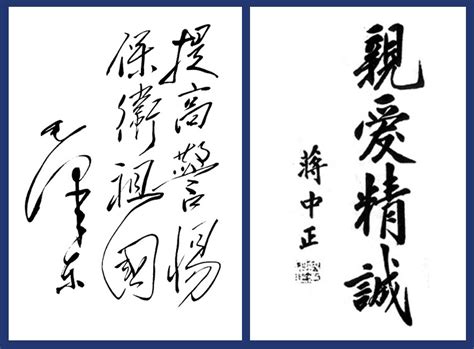 提高警惕
保衛祖國
毛澤东
親愛精誠
蔣中正